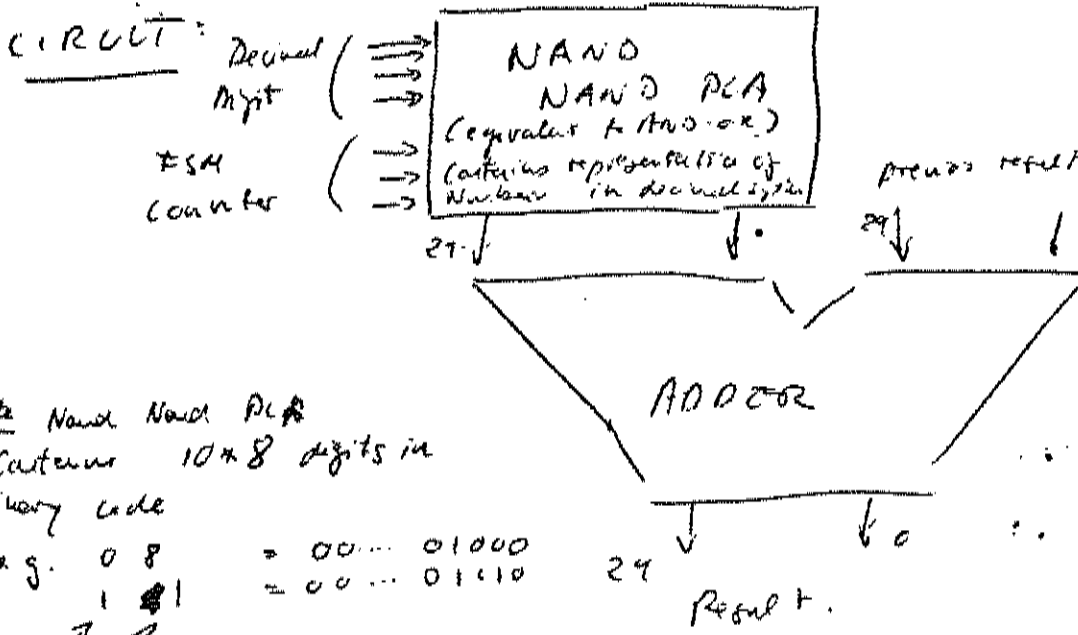 CIRCUIT:
Decimal
Digit
FSM
Counter
NAND
NAND PLA
(equivalent to AND-OR)
Contains representation of
Number in decimal system
previous result
29
29
ADDER
Nand Nand PLA
Contains 10*8 digits in
binary code
e.g. 0 8 = 00... 01000
1 1 = 00... 01010
29
0
Result.